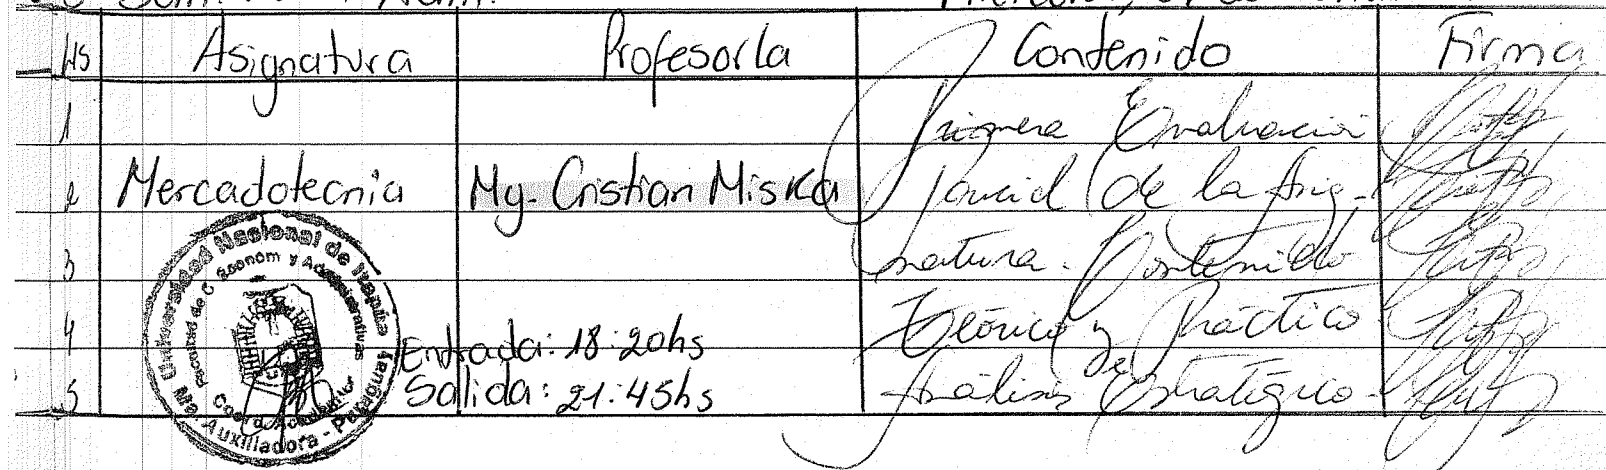 Hs Asignatura Profesor/a Contenido Firma
1 Primera Evaluación
2 Mercadotecnia Mg. Cristian Miska Parcial de la Asig-
3 natura. Contenido
4 Teórico y Práctico
Entrada: 18:20hs
de
5 Análisis Estratégico.
Salida: 21:45hs
Universidad Nacional de Itapúa
Facultad de C. Econom y Administrativas
Ma. Auxiliadora - Paraguay